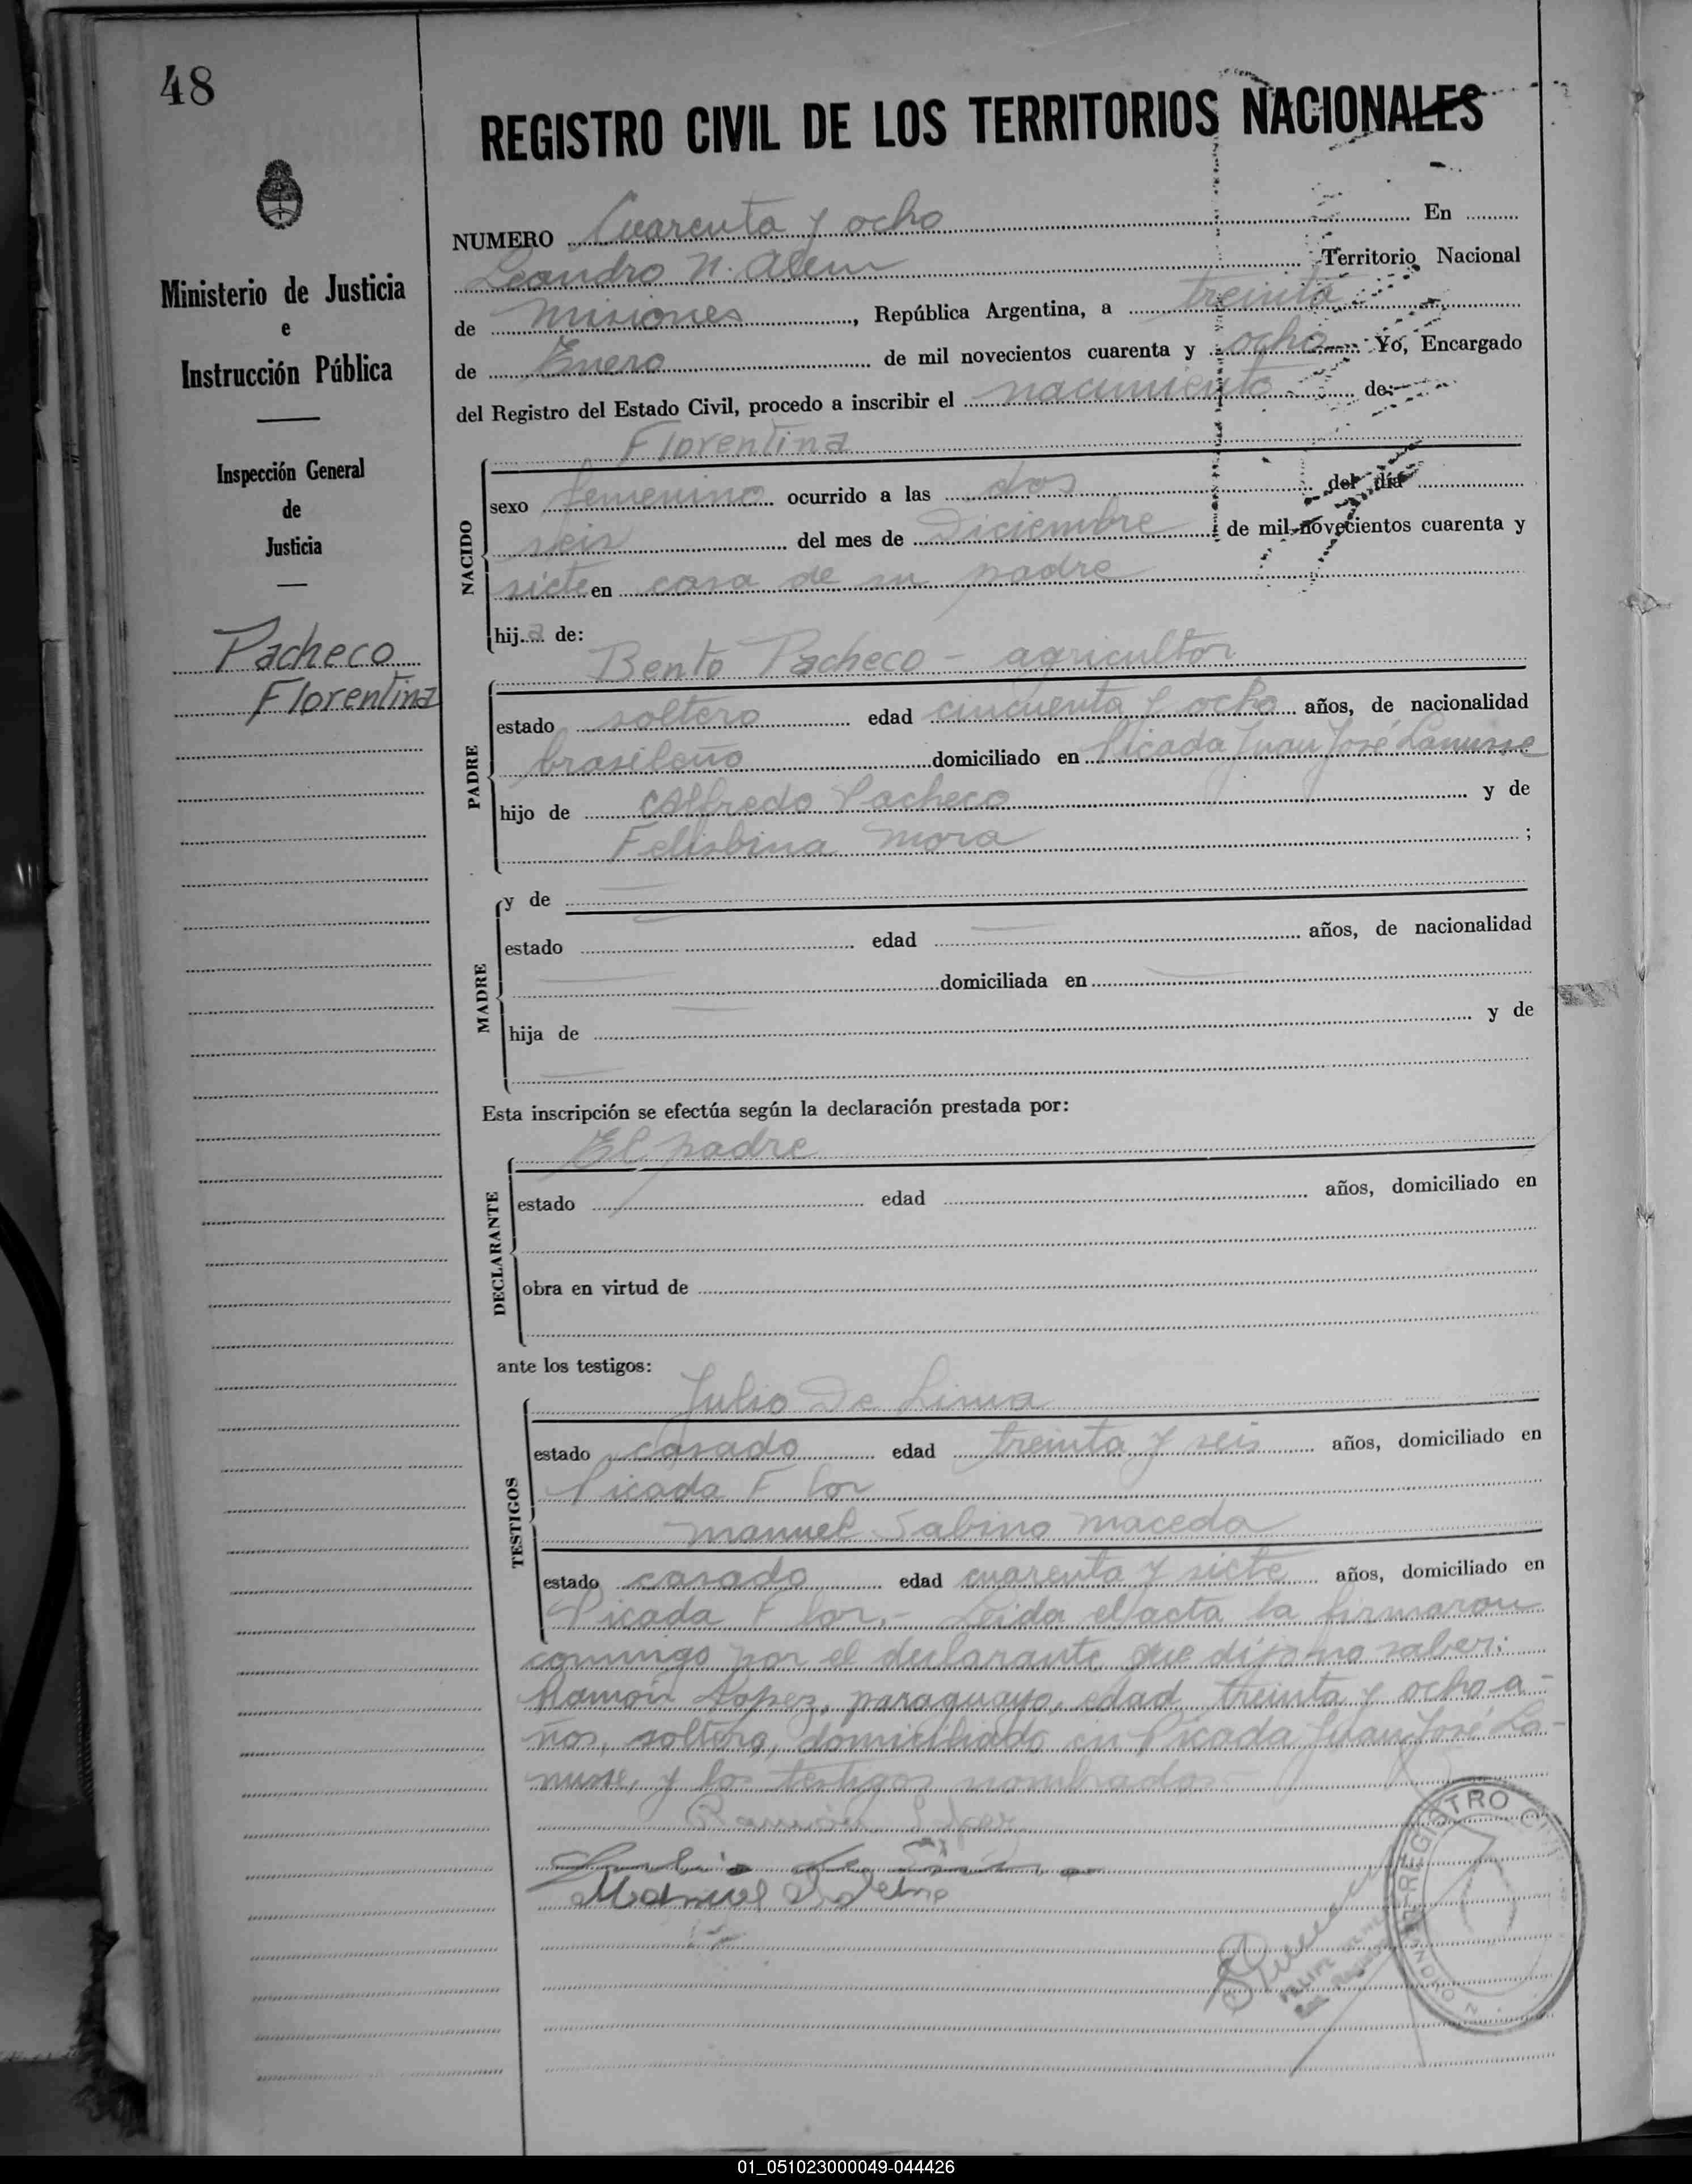 48
REGISTRO CIVIL DE LOS TERRITORIOS NACIONALES
Ministerio de Justicia
e
Instrucción Pública
Inspección General
de
Justicia
Pacheco
Florentina
NUMERO Cuarenta y ocho En
Leandro N. Alem Territorio Nacional
de Misiones, República Argentina, a treinta
de Enero de mil novecientos cuarenta y ocho Yo, Encargado
del Registro del Estado Civil, procedo a inscribir el nacimiento de:
Florentina
NACIDO
sexo femenino ocurrido a las dos del día
seis del mes de Diciembre de mil novecientos cuarenta y
siete en casa de su padre
hija de:
Bento Pacheco - agricultor
PADRE
estado soltero edad cincuenta y ocho años, de nacionalidad
brasileño domiciliado en Picada Juan José Lanusse
hijo de Alfredo Pacheco y de
Felisbina Mora ;
MADRE
y de
estado edad años, de nacionalidad
domiciliada en
hija de y de
Esta inscripción se efectúa según la declaración prestada por:
El padre
DECLARANTE
estado edad años, domiciliado en
obra en virtud de
ante los testigos:
Julio De Lima
TESTIGOS
estado casado edad treinta y seis años, domiciliado en
Picada Flor
Manuel Sabino Maceda
estado casado edad cuarenta y siete años, domiciliado en
Picada Flor.- Leida el acta la firmaron
conmigo por el declarante que dijo no saber:
Ramón Lopez, paraguayo, edad treinta y ocho a-
ños, soltero, domiciliado en Picada Juan José La-
nusse, y los testigos nombrados-
Ramón López
Manuel
REGISTRO CIVIL
01_051023000049-044426